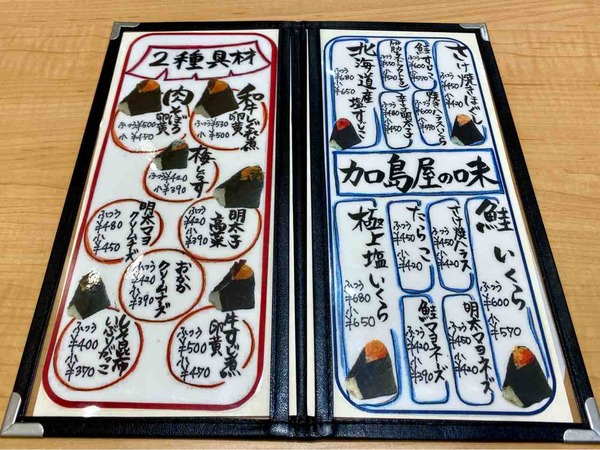 2種具材
卵黄
ふつう¥530
小 ¥500
肉そぼろ
卵黄
ふつう¥500
小 ¥450
梅とろす
ふつう¥420
小 ¥390
明太子
高菜
ふつう
¥420
小¥390
明太マヨ
クリームチーズ
ふつう
¥480
小
¥450
おかか
クリームチーズ
ふつう
¥420
小
¥390
牛すじ煮
卵黄
ふつう
¥500
小
¥470
ふつう
¥400
小
¥370
さけ焼きほぐし
ふつう
¥450
小
¥420
鮭すじこ
ふつう
¥600
小
¥570
北海道産
塩すじこ
ふつう
¥680
小
¥650
加島屋の味
鮭いくら
ふつう
¥600
小
¥570
さけ焼ハラス
ふつう
¥450
小
¥420
たらこ
ふつう
¥450
小
¥420
極上塩いくら
ふつう
¥680
小
¥650
明太マヨネーズ
ふつう
¥450
小
¥420
鮭マヨネーズ
ふつう
¥420
小
¥390